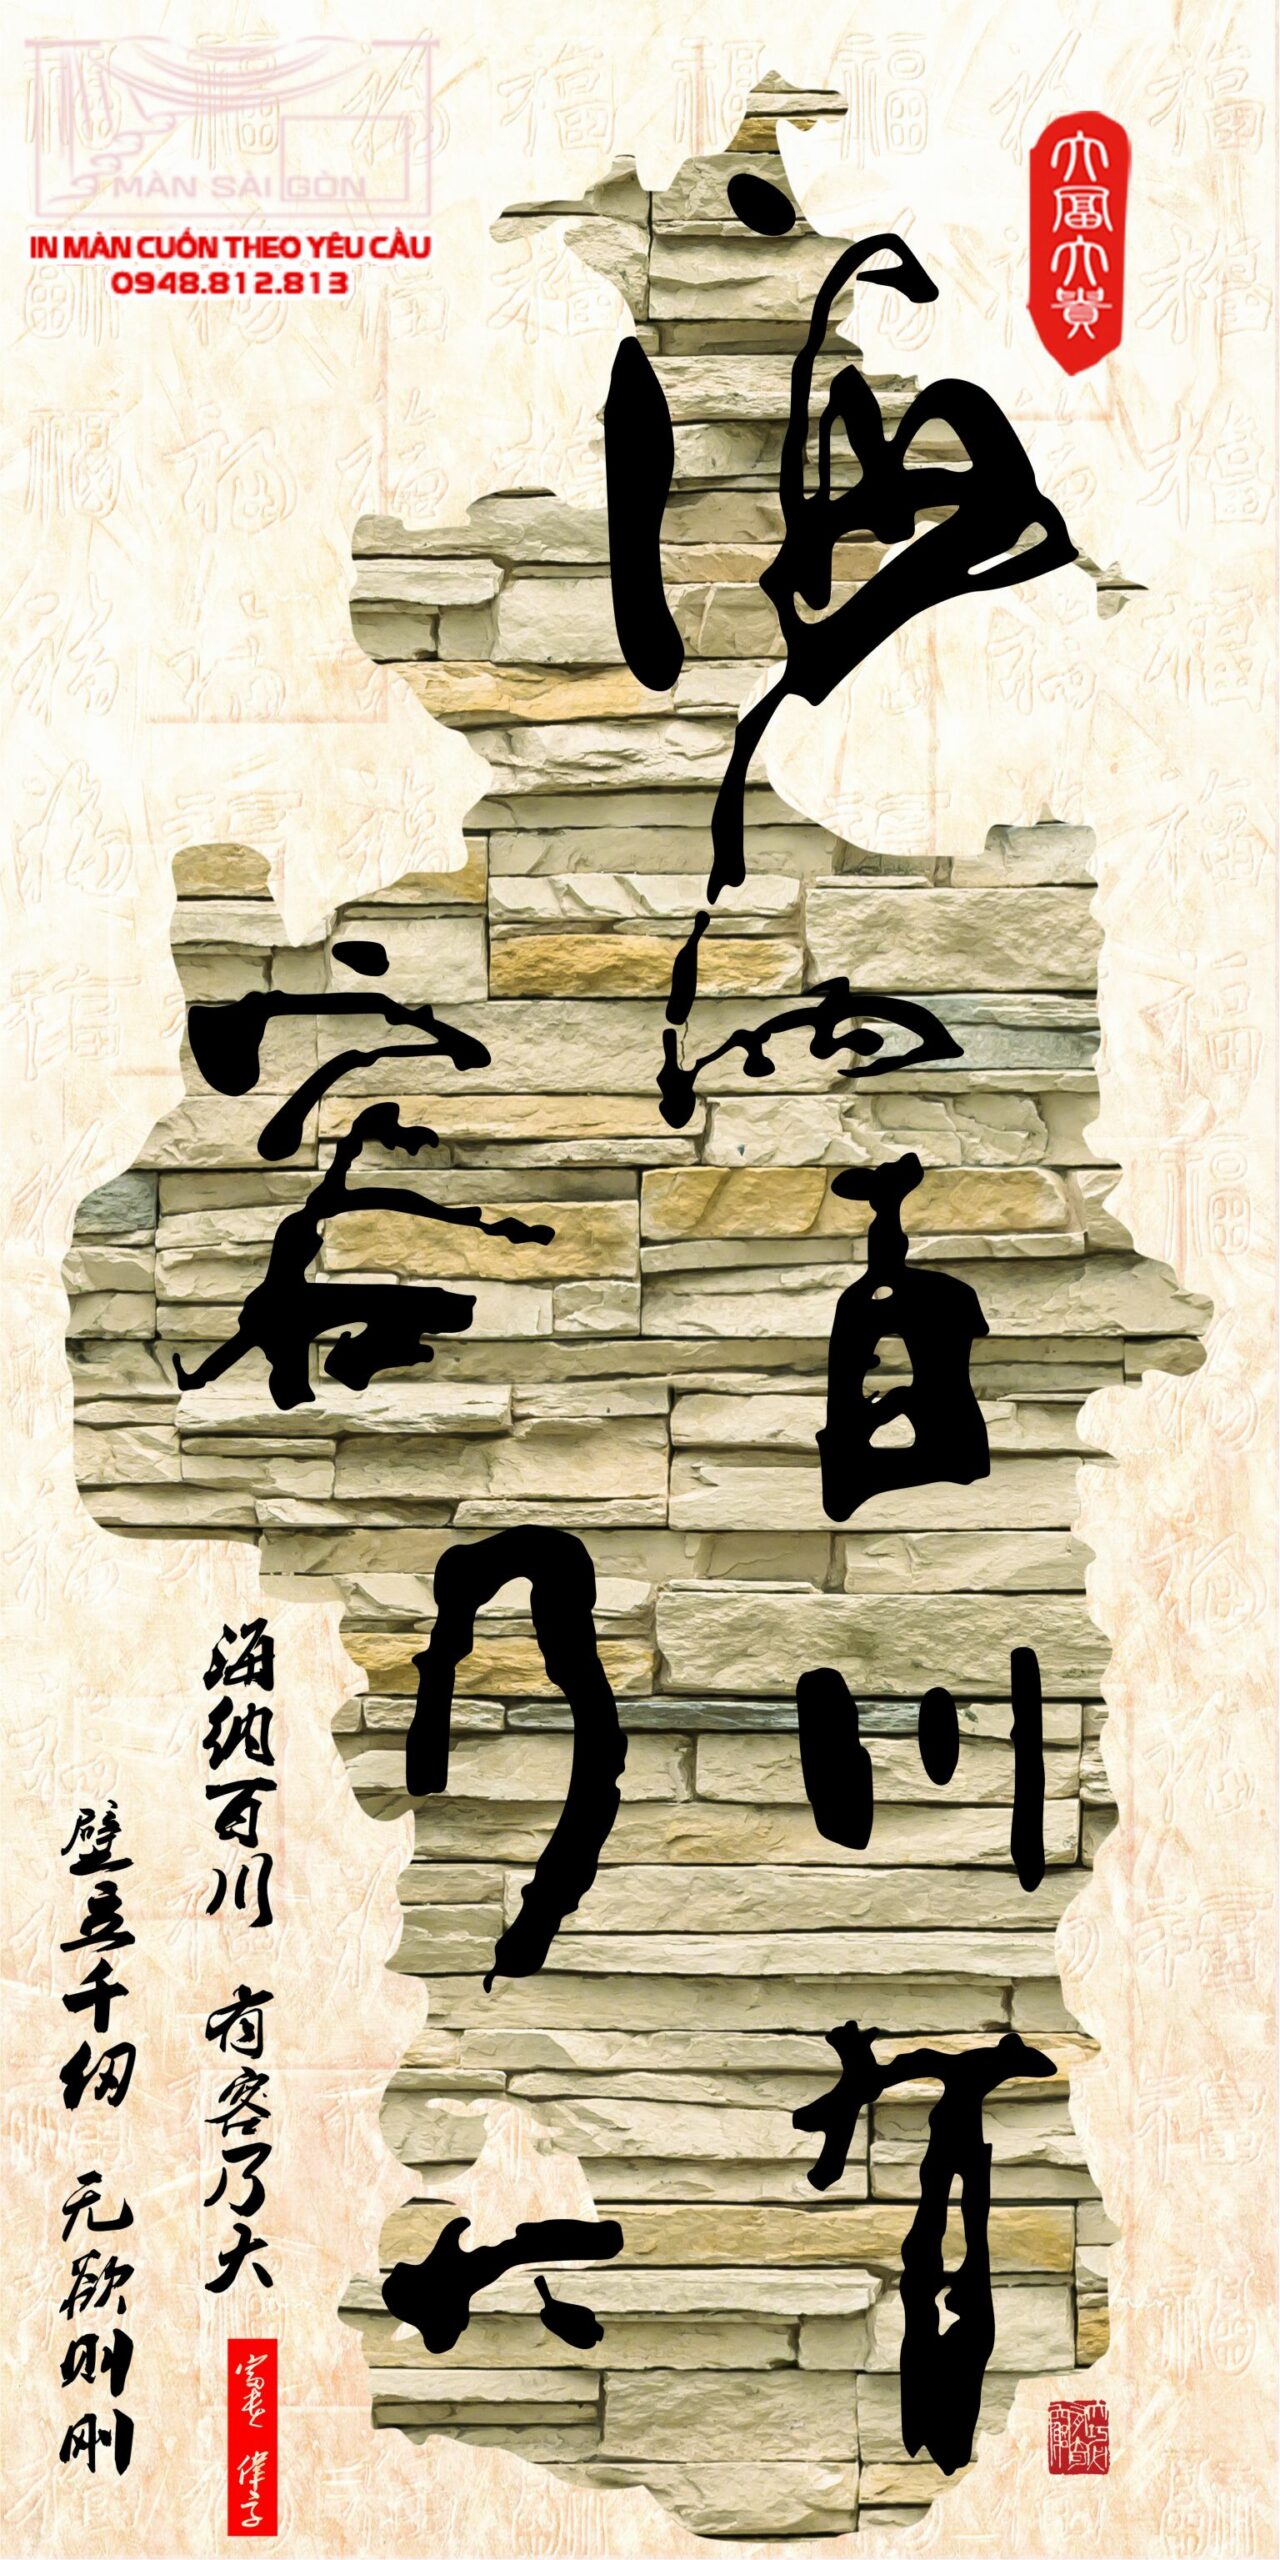 MÀN SÀI GÒN
IN MÀN CUỐN THEO YÊU CẦU
0948.812.813
大富大貴
海纳百川有
容乃大
海纳百川 有容乃大
壁立千仞 无欲则刚